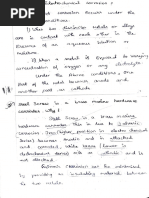 Electrochemical corrosion :
corrosion occurs under the
conditions.
i) When two dissimilar metals or alloys
are in contact with each other in the
presence of an aqueous solution or
moisture.
ii) When a metal is exposed to varying
concentration of oxygen or any electrolyte
Under the above conditions, one
part of the metal becomes anode and
another part as cathode
Steel Screw in a brass marine hardware
corrodes why ?
Steel Screw in a brass marine
hardware corrodes. This is due to galvanic
corrosion. Iron (higher position in electro chemical
Series) becomes anodic and is attacked
and corroded, while brass (lower in
electrochemical series) acts as cathodic and is
not attacked.
Galvanic corrosion can be minimised
by providing an insulating material between
the two metals.